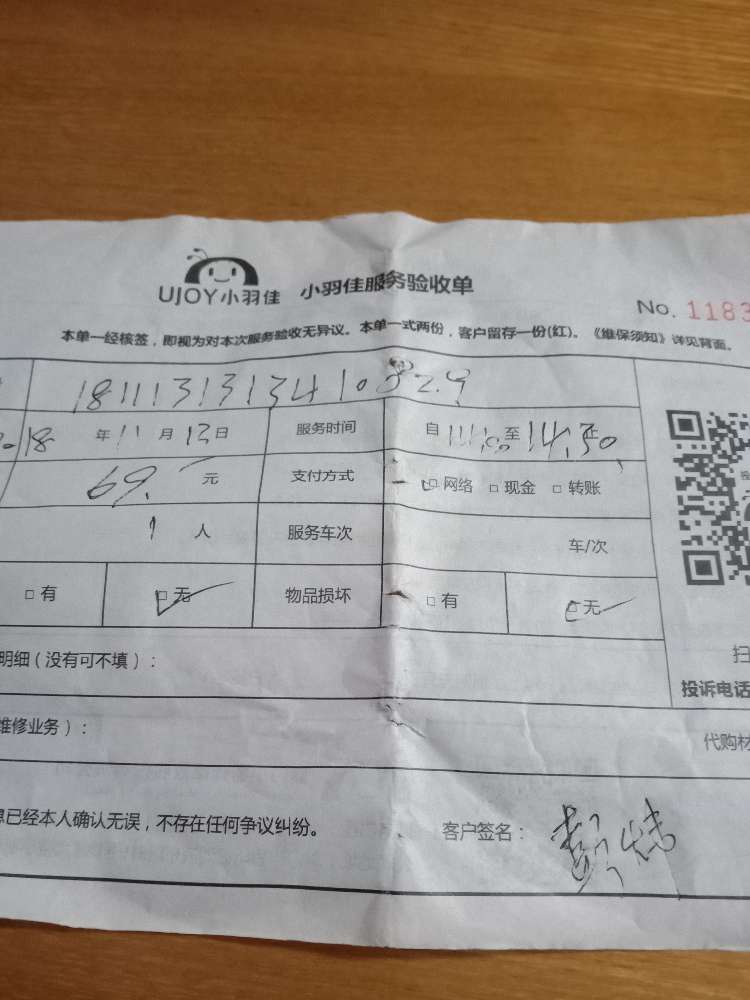 UJOY小羽佳 小羽佳服务验收单
No. 1183
本单一经核签，即视为对本次服务验收无异议。本单一式两份，客户留存一份(红)。《维保须知》详见背面。
18 年 11 月 13 日 服务时间 自 至 14:30
69. 元 支付方式 □ 网络 □ 现金 □ 转账
1 人 服务车次 车/次
□ 有 □ 无 物品损坏 □ 有 □ 无
明细（没有可不填）：
投诉电话
维修业务）：
代购材
息已经本人确认无误，不存在任何争议纠纷。 客户签名：